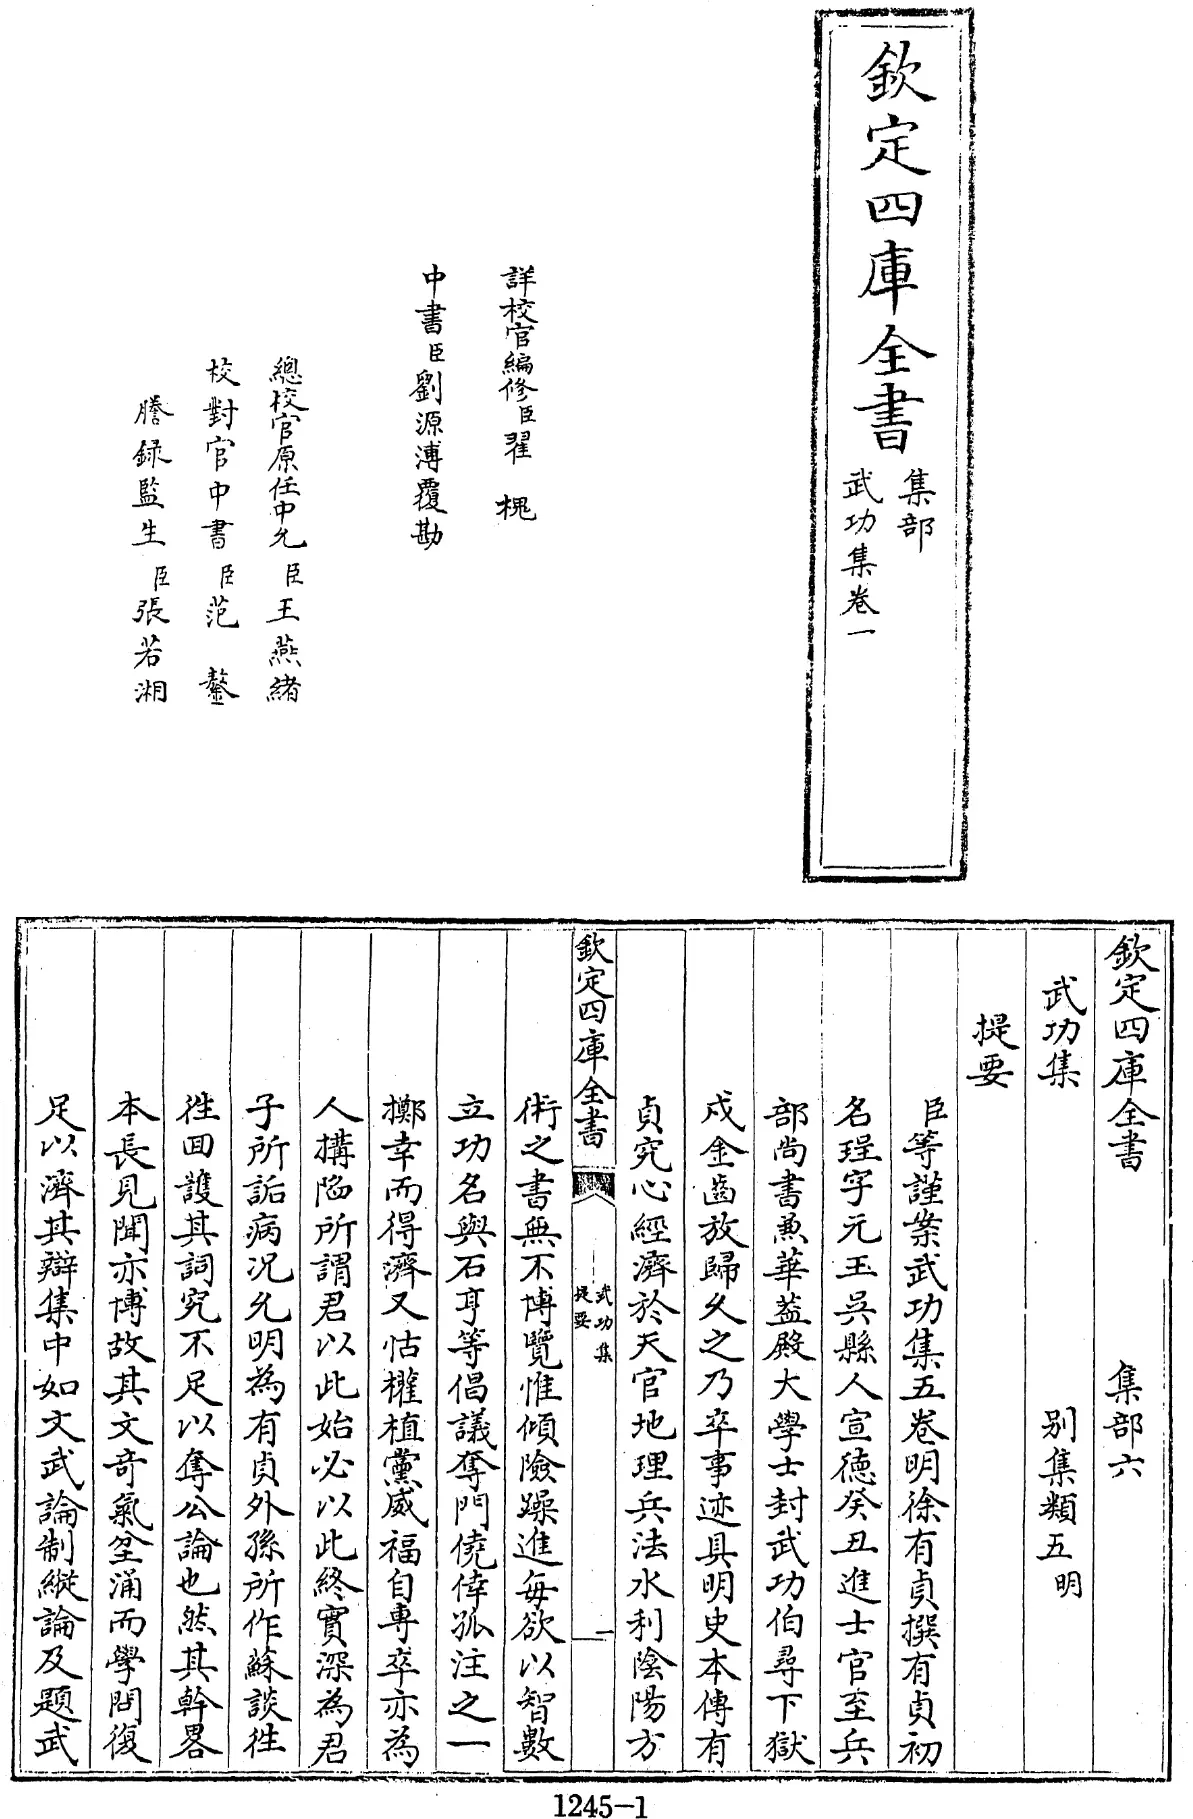 欽定四庫全書
集部
武功集卷一
詳校官編修臣翟槐
中書臣劉源溥覆勘
總校官原任中允臣王燕緒
校對官中書臣范鏊
謄録監生臣張若湘
欽定四庫全書 集部六
武功集 别集類五明
提要
臣等謹案武功集五卷明徐有貞撰有貞初
名珵字元玉吳縣人宣德癸丑進士官至兵
部尚書兼華葢殿大學士封武功伯尋下獄
戍金齒放歸久之乃卒事迹具明史本傳有
貞究心經濟於天官地理兵法水利陰陽方
欽定四庫全書
武功集
提要
一
術之書無不博覽惟傾險躁進每欲以智數
立功名與石亨等倡議奪門僥倖孤注之一
擲幸而得濟又怙權植黨威福自專卒亦為
人搆陷所謂君以此始必以此終實深為君
子所詬病況允明為有貞外孫所作蘇談徃
徃囬護其詞究不足以奪公論也然其幹畧
本長見聞亦博故其文奇氣坌涌而學問復
足以濟其辯集中如文武論制縱論及題武
1245-1